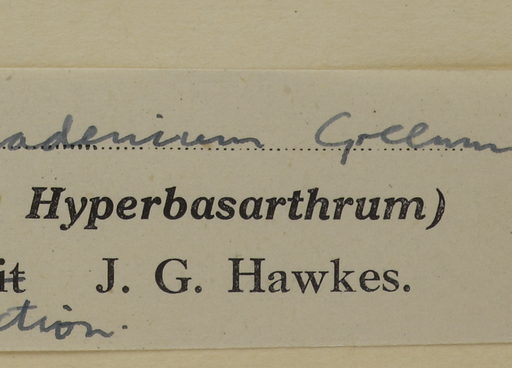 adenium Greenm
Hyperbasarthrum)
it J. G. Hawkes.
ction.